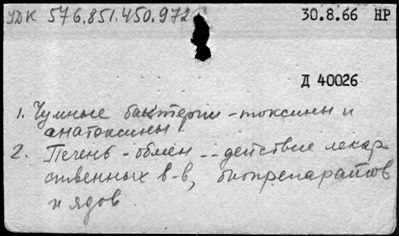 УДК 576.851.450.972
30.8.66 НР
Д 40026
1. Чумные бактерии - токсины и
анатоксины
2. Печень - обмен -- действие лекар-
ственных в-в, биопрепаратов
и ядов